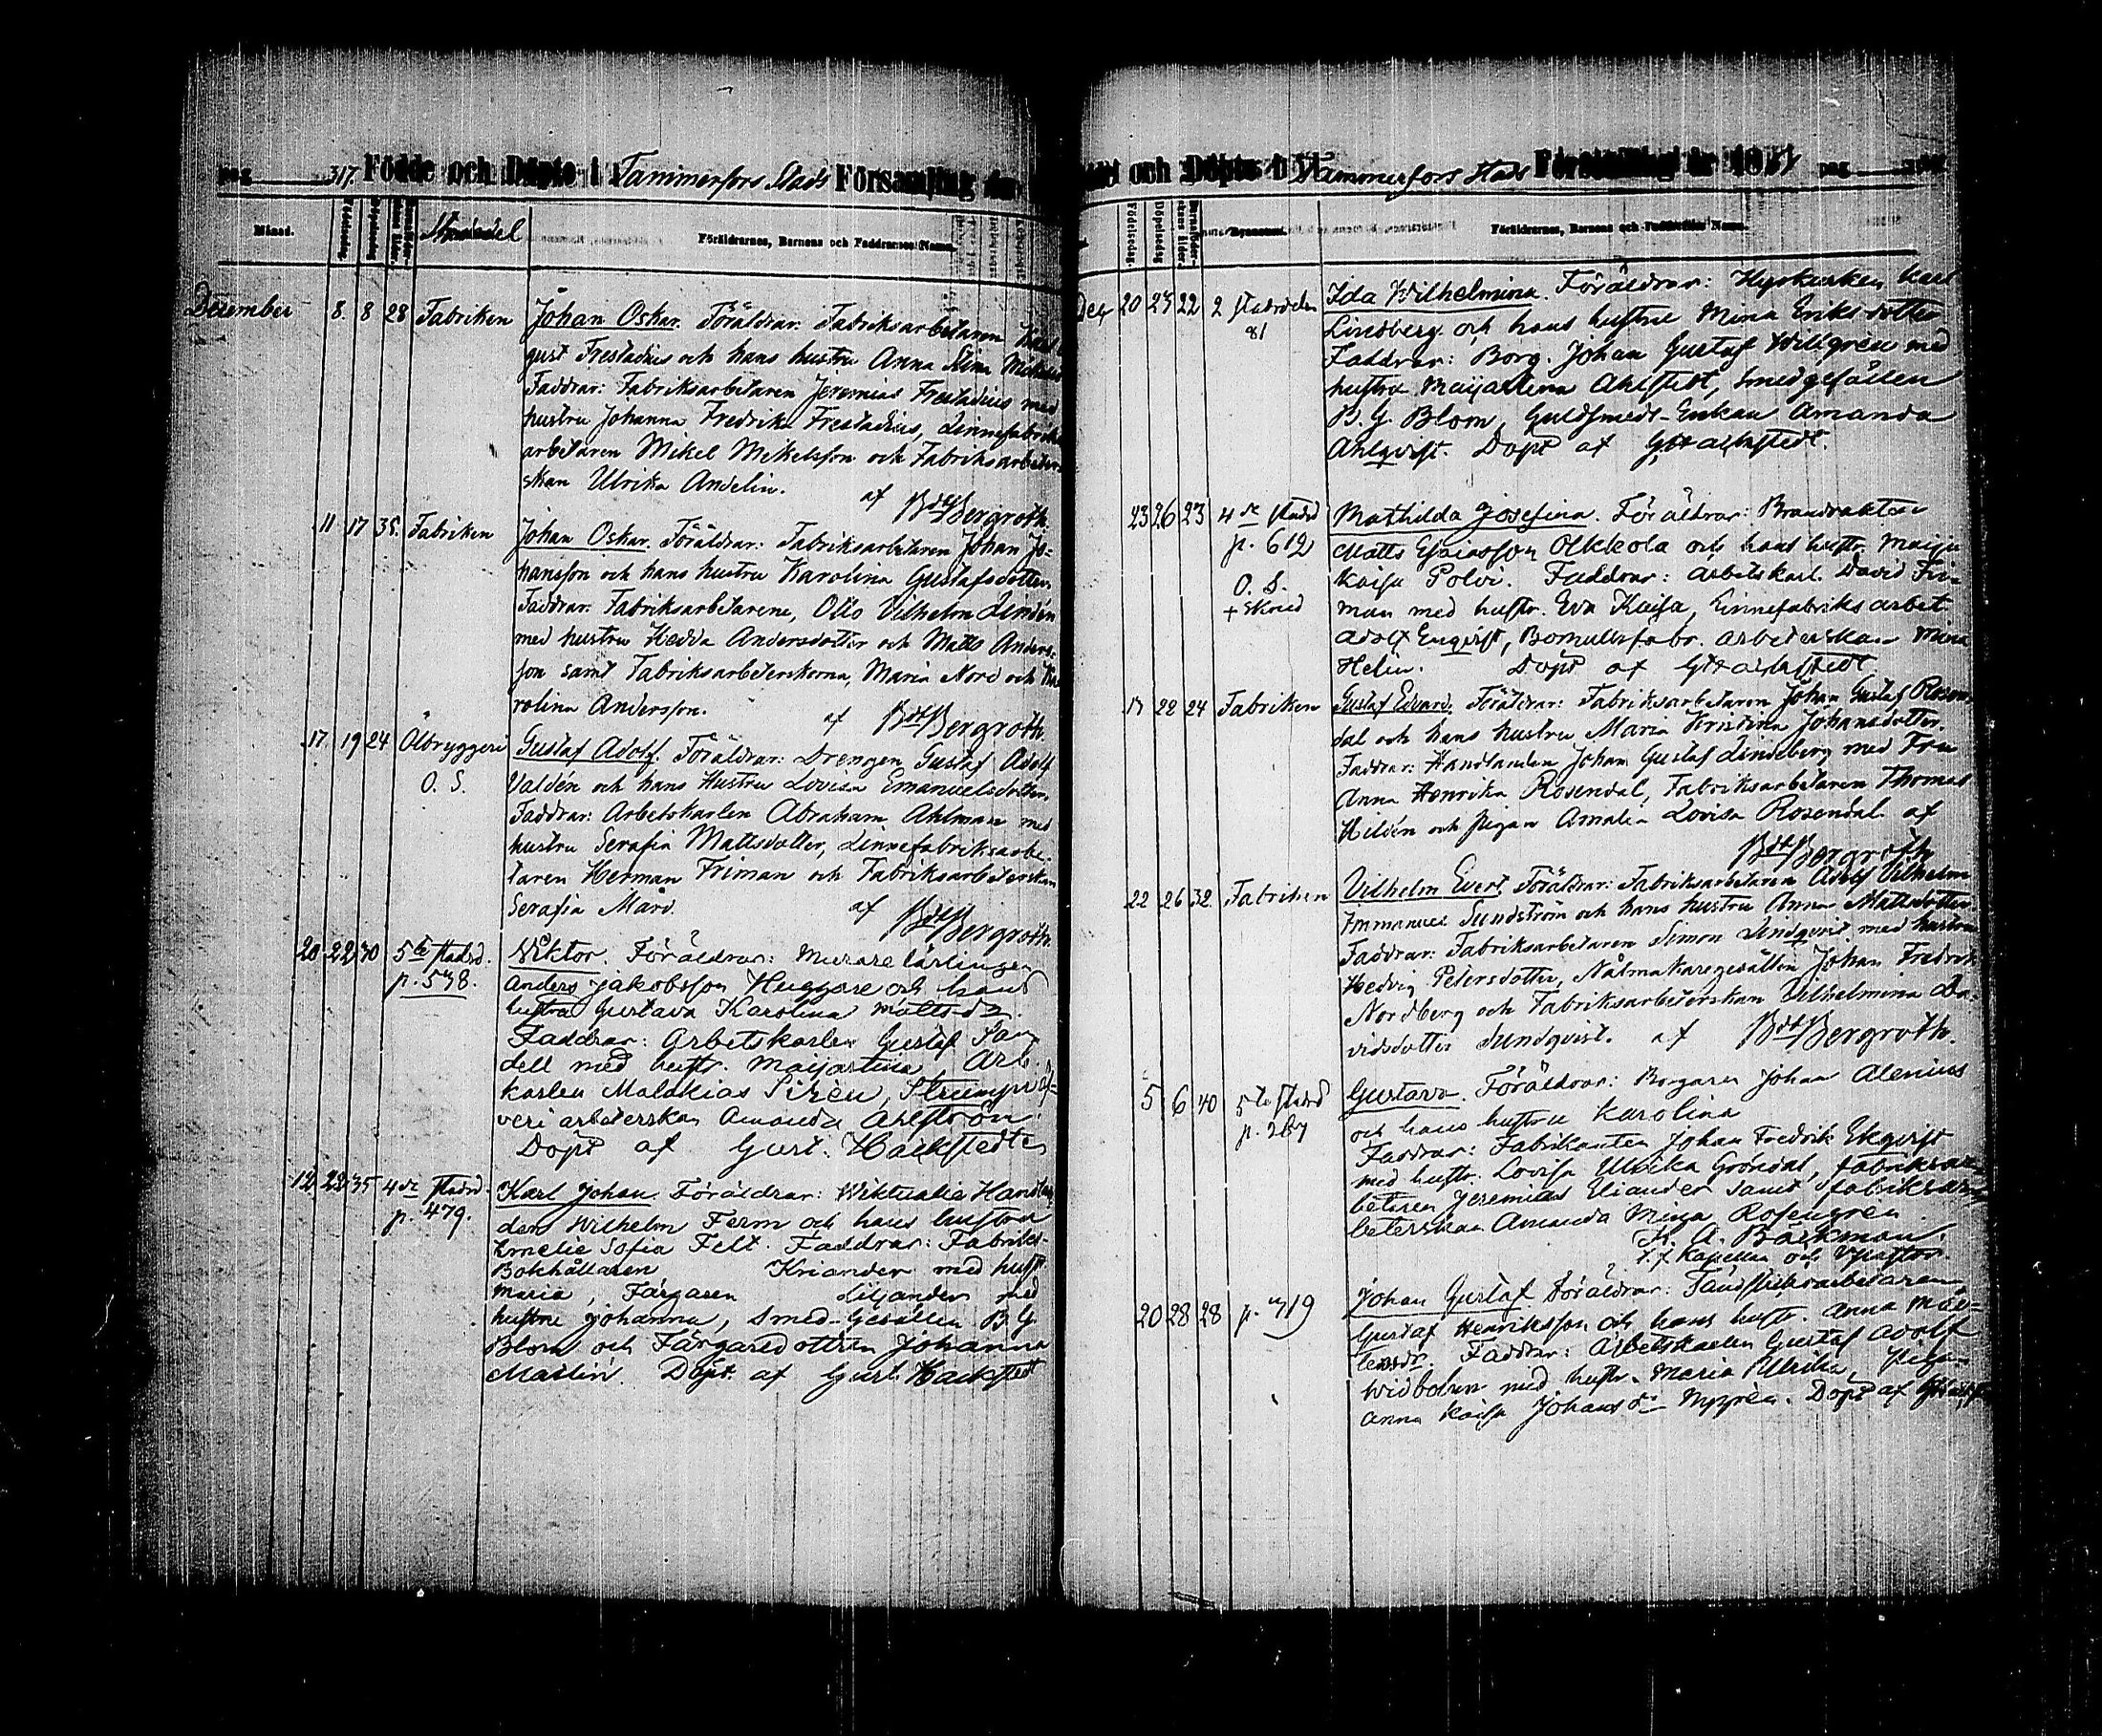 pag. 317. Födde och Döpte i Tammerfors Stads Församling år
Månad. Födelsedag. Döpelsedag. Stadsdel Föräldrarnes, Barnens och Faddrarnes Namn.
December 8. 8 28 Fabriken Johan Oskar. Föräldrar: Fabriksarbetaren Karl
gust Frestadius och hans hustru Anna Stina
Faddrar: Fabriksarbetaren Jeremias Frestadius med
hustru Johanna Fredrika Frestadius, Linnefabriks
arbetaren Mikel Mikelsson och Fabriksarbeter-
skan Ulrika Andelin. af Bergroth.
11 17 35. Fabriken Johan Oskar. Föräldrar: Fabriksarbetaren Johan Jo-
hansson och hans hustru Karolina Gustafsdotter.
Faddrar: Fabriksarbetarene, Otto Vilhelm Lindén
med hustru Hedda Andersdotter och Matts Anders-
son samt Fabriksarbeterskorna, Maria Nord och Ka
rolina Andersson. af Bergroth.
17. 19 24 Ölbryggeri Gustaf Adolf. Föräldrar: Drengen Gustaf Adolf
O. S. Valdén och hans Hustru Lovisa Emanuelsdotter.
Faddrar: Arbetskarlen Abraham Ahlman med
hustru Serafia Mattsdotter, Linnefabriksarbe-
taren Herman Friman och Fabriksarbeterskan
Serafia Mård. af Bergroth.
20 22 30 5te stadsd. Viktor. Föräldrar: Murarelärlingen
p. 578. Anders Jakobsson Huggare och hans
hustru Gustava Karolina Mattsdr.
Faddrar: Arbetskarlen Gustaf San
dell med hustr. Maijastina Arb.
karlen Malakias Sirèn, Strumpväf-
veri arbeterskan Amanda Ahlström.
Döpt af Gust. Hackstedt
12 22 35 4de stadsd. Karl Johan. Föräldrar: Viktualie Handlan
p. 479. den Wilhelm Ferm och hans hustru
Emelie Sofia Felt. Faddrar: Fabriks-
Bokhållaren Kriander med hust
Maria, Färgaren Liljander med
hustru Johanna, Smed-Gesällen B. G.
Blom och Färgaredottren Johanna
Martin. Döpt af Gust. Hackstedt
och Döpte i Tammerfors Stads Församling år 1871 pag.
Födelsedag. Döpelsedag. Föräldrarnes, Barnens och Faddrarnes Namn.
Dec 20 25 22 2 stadsdelen Ida Wilhelmina. Föräldrar: Hyrkusken Karl
81 Lindberg och hans hustru Mina Eriksdotter
Faddrar: Borg. Johan Gustaf Willgrèn med
hustru Maijastina Ahlstedt, Smedgesällen
B. G. Blom, Guldsmeds Enkan Amanda
Ahlqvist. Döpt af G Hackstedt.
23 26 23 4de stadsd Mathilda Josefina. Föräldrar: Brandvakten
p. 612 Matts Olkkola och hans hustr. Maija
O. S. Kaisa Polvi. Faddrar: Arbetskarl. David Fri-
man med hustr. Eva Kaisa, Linnefabriks arbet.
Adolf Enqvist, Bomullsfabr. arbeterskan Mina
Helin. Döpt af G Hackstedt
17 28 24 Fabriken Gustaf Edvard. Föräldrar: Fabriksarbetaren Johan Gustaf Rosen-
dal och hans hustru Maria Kristina Johansdotter.
Faddrar: Handlanden Johan Gustaf Lindeberg med Fru
Anna Henrika Rosendal, Fabriksarbetaren Thomas
Hildén och pigan Amalia Lovisa Rosendal. af
Bergroth
22 26 32 Fabriken Vilhelm Evert. Föräldrar: Fabriksarbetaren Adolf Vilhelm
Immanuel Sundström och hans hustru Anna Mattsdotter.
Faddrar: Fabriksarbetaren Simon Lindqvist med hustru
Hedvig Petersdotter, Nålmakaregesällen Johan Fredrik
Nordberg och Fabriksarbeterskan Vilhelmina Da-
vidsdotter Sundqvist. af Bergroth.
5 6 40 5te stadsd Gustava. Föräldrar: Borgaren Johan Alenius
p. 267 och hans hustru Karolina
Faddrar: Fabrikanten Johan Fredrik Ekqvist
med hustr. Lovisa Ulrika Gröndal, fabriksar-
betaren Jeremias Eliander samt fabriksar-
beterskan Amanda Mina Rosengrèn.
K. A. Bäckman.
t. f. Kapellan och Vpastor.
20 28 28 p. 719 Johan Gustaf. Föräldrar:
Gustaf Henriksson och hans hustr. Anna Mår-
tensdr. Faddrar: Arbetskarlen Gustaf Adolf
Widbohm med hustr. Maria Ulrika, Pigan
Anna Kaisa Johansdr Nygrèn. Döpt af